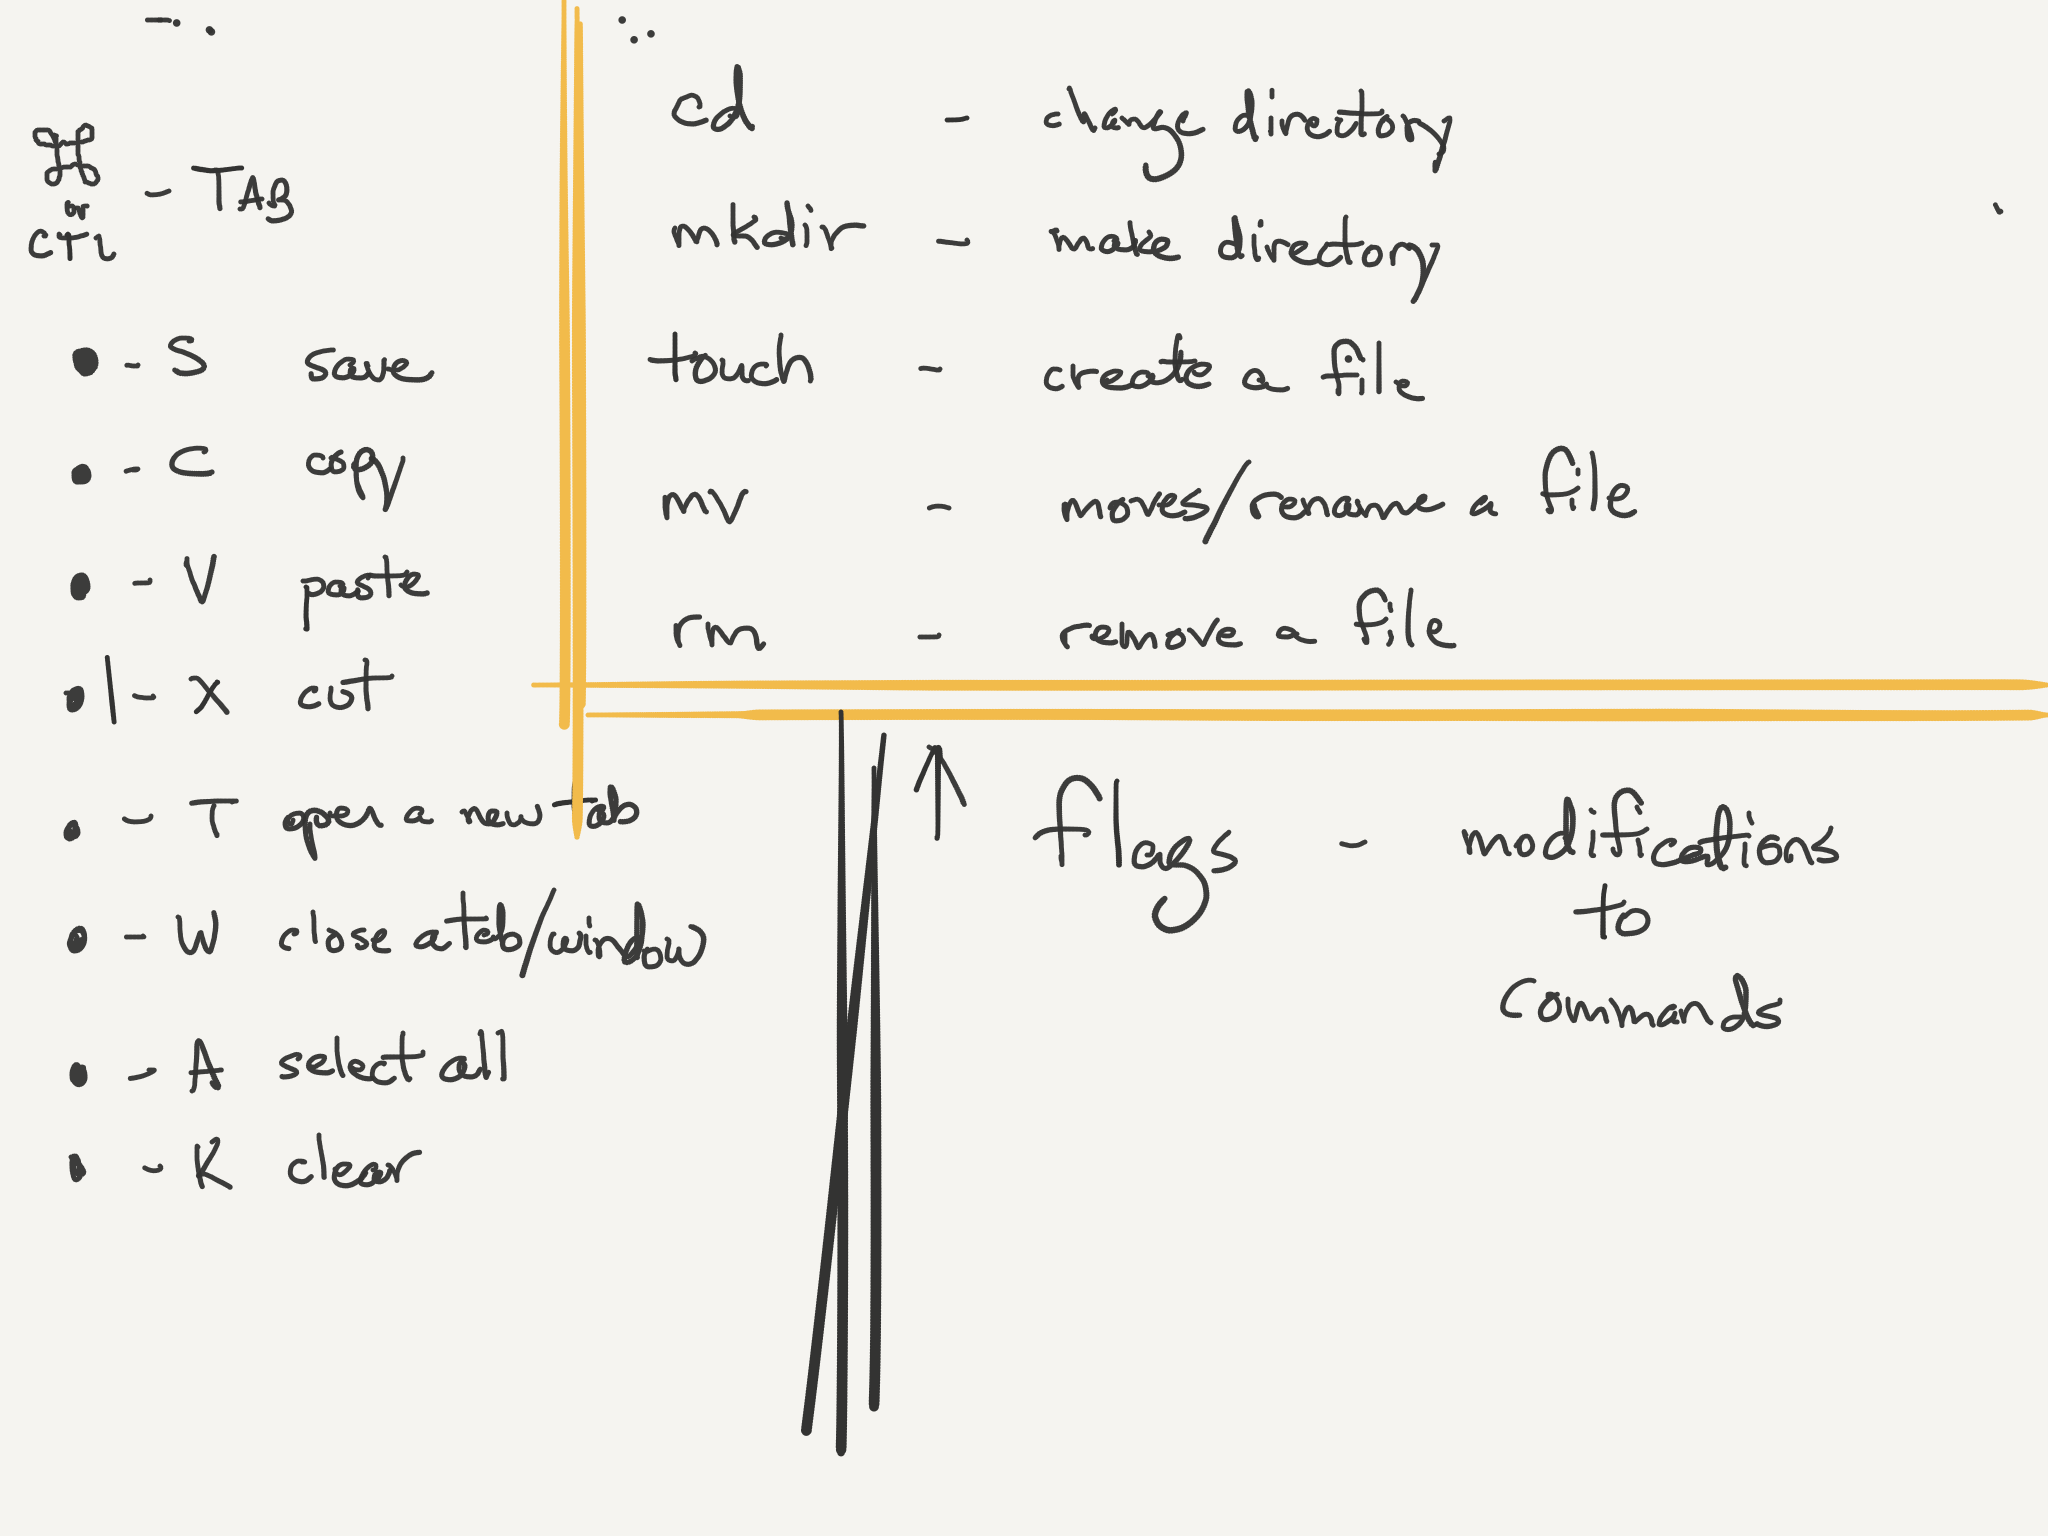 ⌘
or
CTL - TAB
• - S save
• - C copy
• - V paste
• - X cut
• - T open a new Tab
• - W close a tab/window
• - A select all
• - K clear
cd - change directory
mkdir - make directory
touch - create a file
mv - moves/rename a file
rm - remove a file
↑ flags - modifications
to
commands